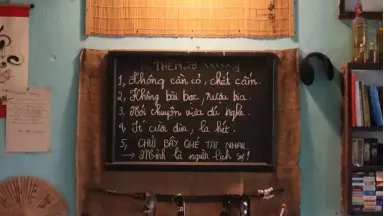 1, Không cắn cỏ, chết cấm.
2, Không bài bạc, rượu bia.
3, Nói chuyện vừa đủ nghe.
4, Ít cười đùa, la hét.
5, CHỬI BẬY GHÉ TAI NHAU
→ Mình là người lịch sự!